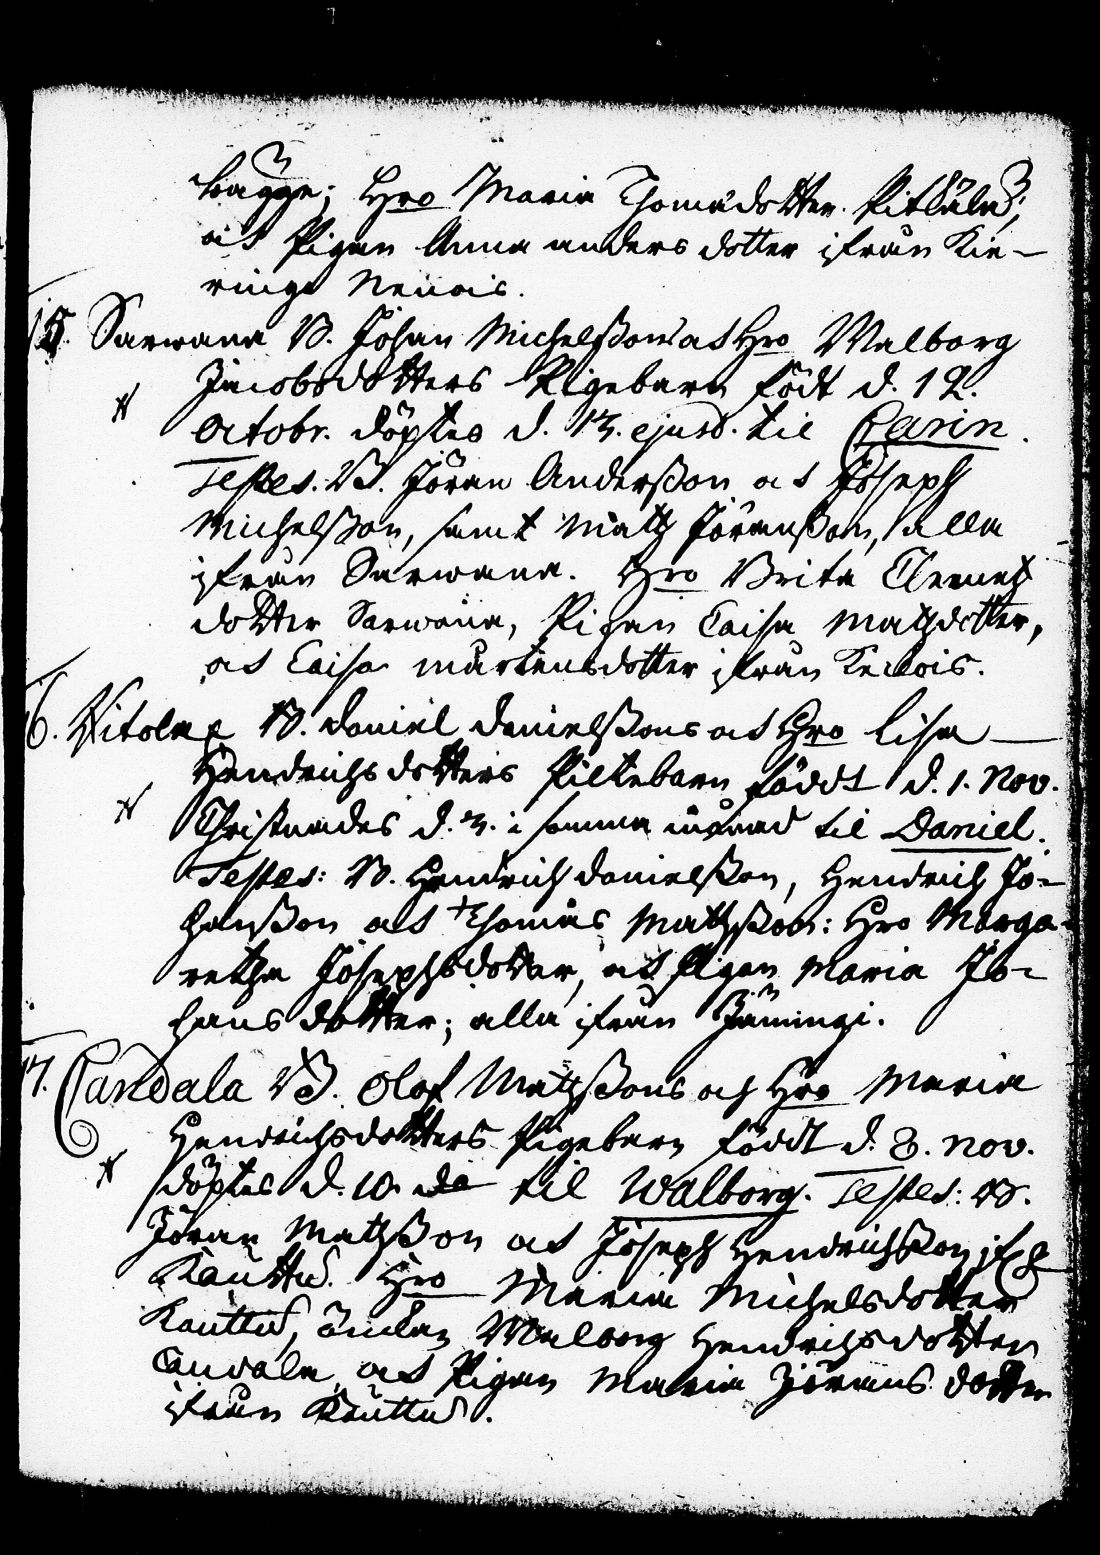 bagge; Hro Maria Thomædotter Pitkälä;
ok Pigan Anna anders dotter ifrån Kie-
ringe Nenois.
15. Sarwana B. Johan Michelßons ok Hro Walborg
Jacobsdotters Pigebarn födt d. 12.
Octobr. döptes d. 13. ejusd. til Carin.
Testes. B. Jöran Anderßon ok Joseph
Michelßon, samt Matz Jöranßon, alla
ifrån Sarwana. Hro Brita Clemetz
dotter Sarwana, Pigan Caisa Matzdotter,
ok Caisa mårtensdotter ifrån
16. Vitola B. Daniel Danielßons ok Hro Lisa
Hendrichsdotters Piltebarn föddt d. 1. Nov.
Christnades d. 3. i samma månad til Daniel.
Testes: B. Hendrich Danielßon, Hendrich Jo-
hanßon ok Thomas Matzßon: Hro Marga-
retha Josephsdotter, ok Pigan Maria Jo-
hans dotter; alla ifrån
17. Candala B. Olof Matzßons och Hro Maria
Hendrichsdotters Pigebarn födt d. 8. nov.
döptes d. 10. do til Walborg. Testes: B.
Jöran Matzßon ok Joseph Hendrichßon ifr
Kauttu. Hro Maria Michelsdotter
Kauttu, änckan Walborg Hendrichsdotter
Candala, ok Pigan Maria Jörans dotter
ifrån Kauttu.